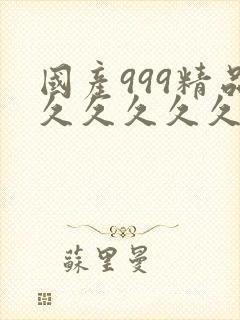 國產999精品
久久久久久
蘇里曼